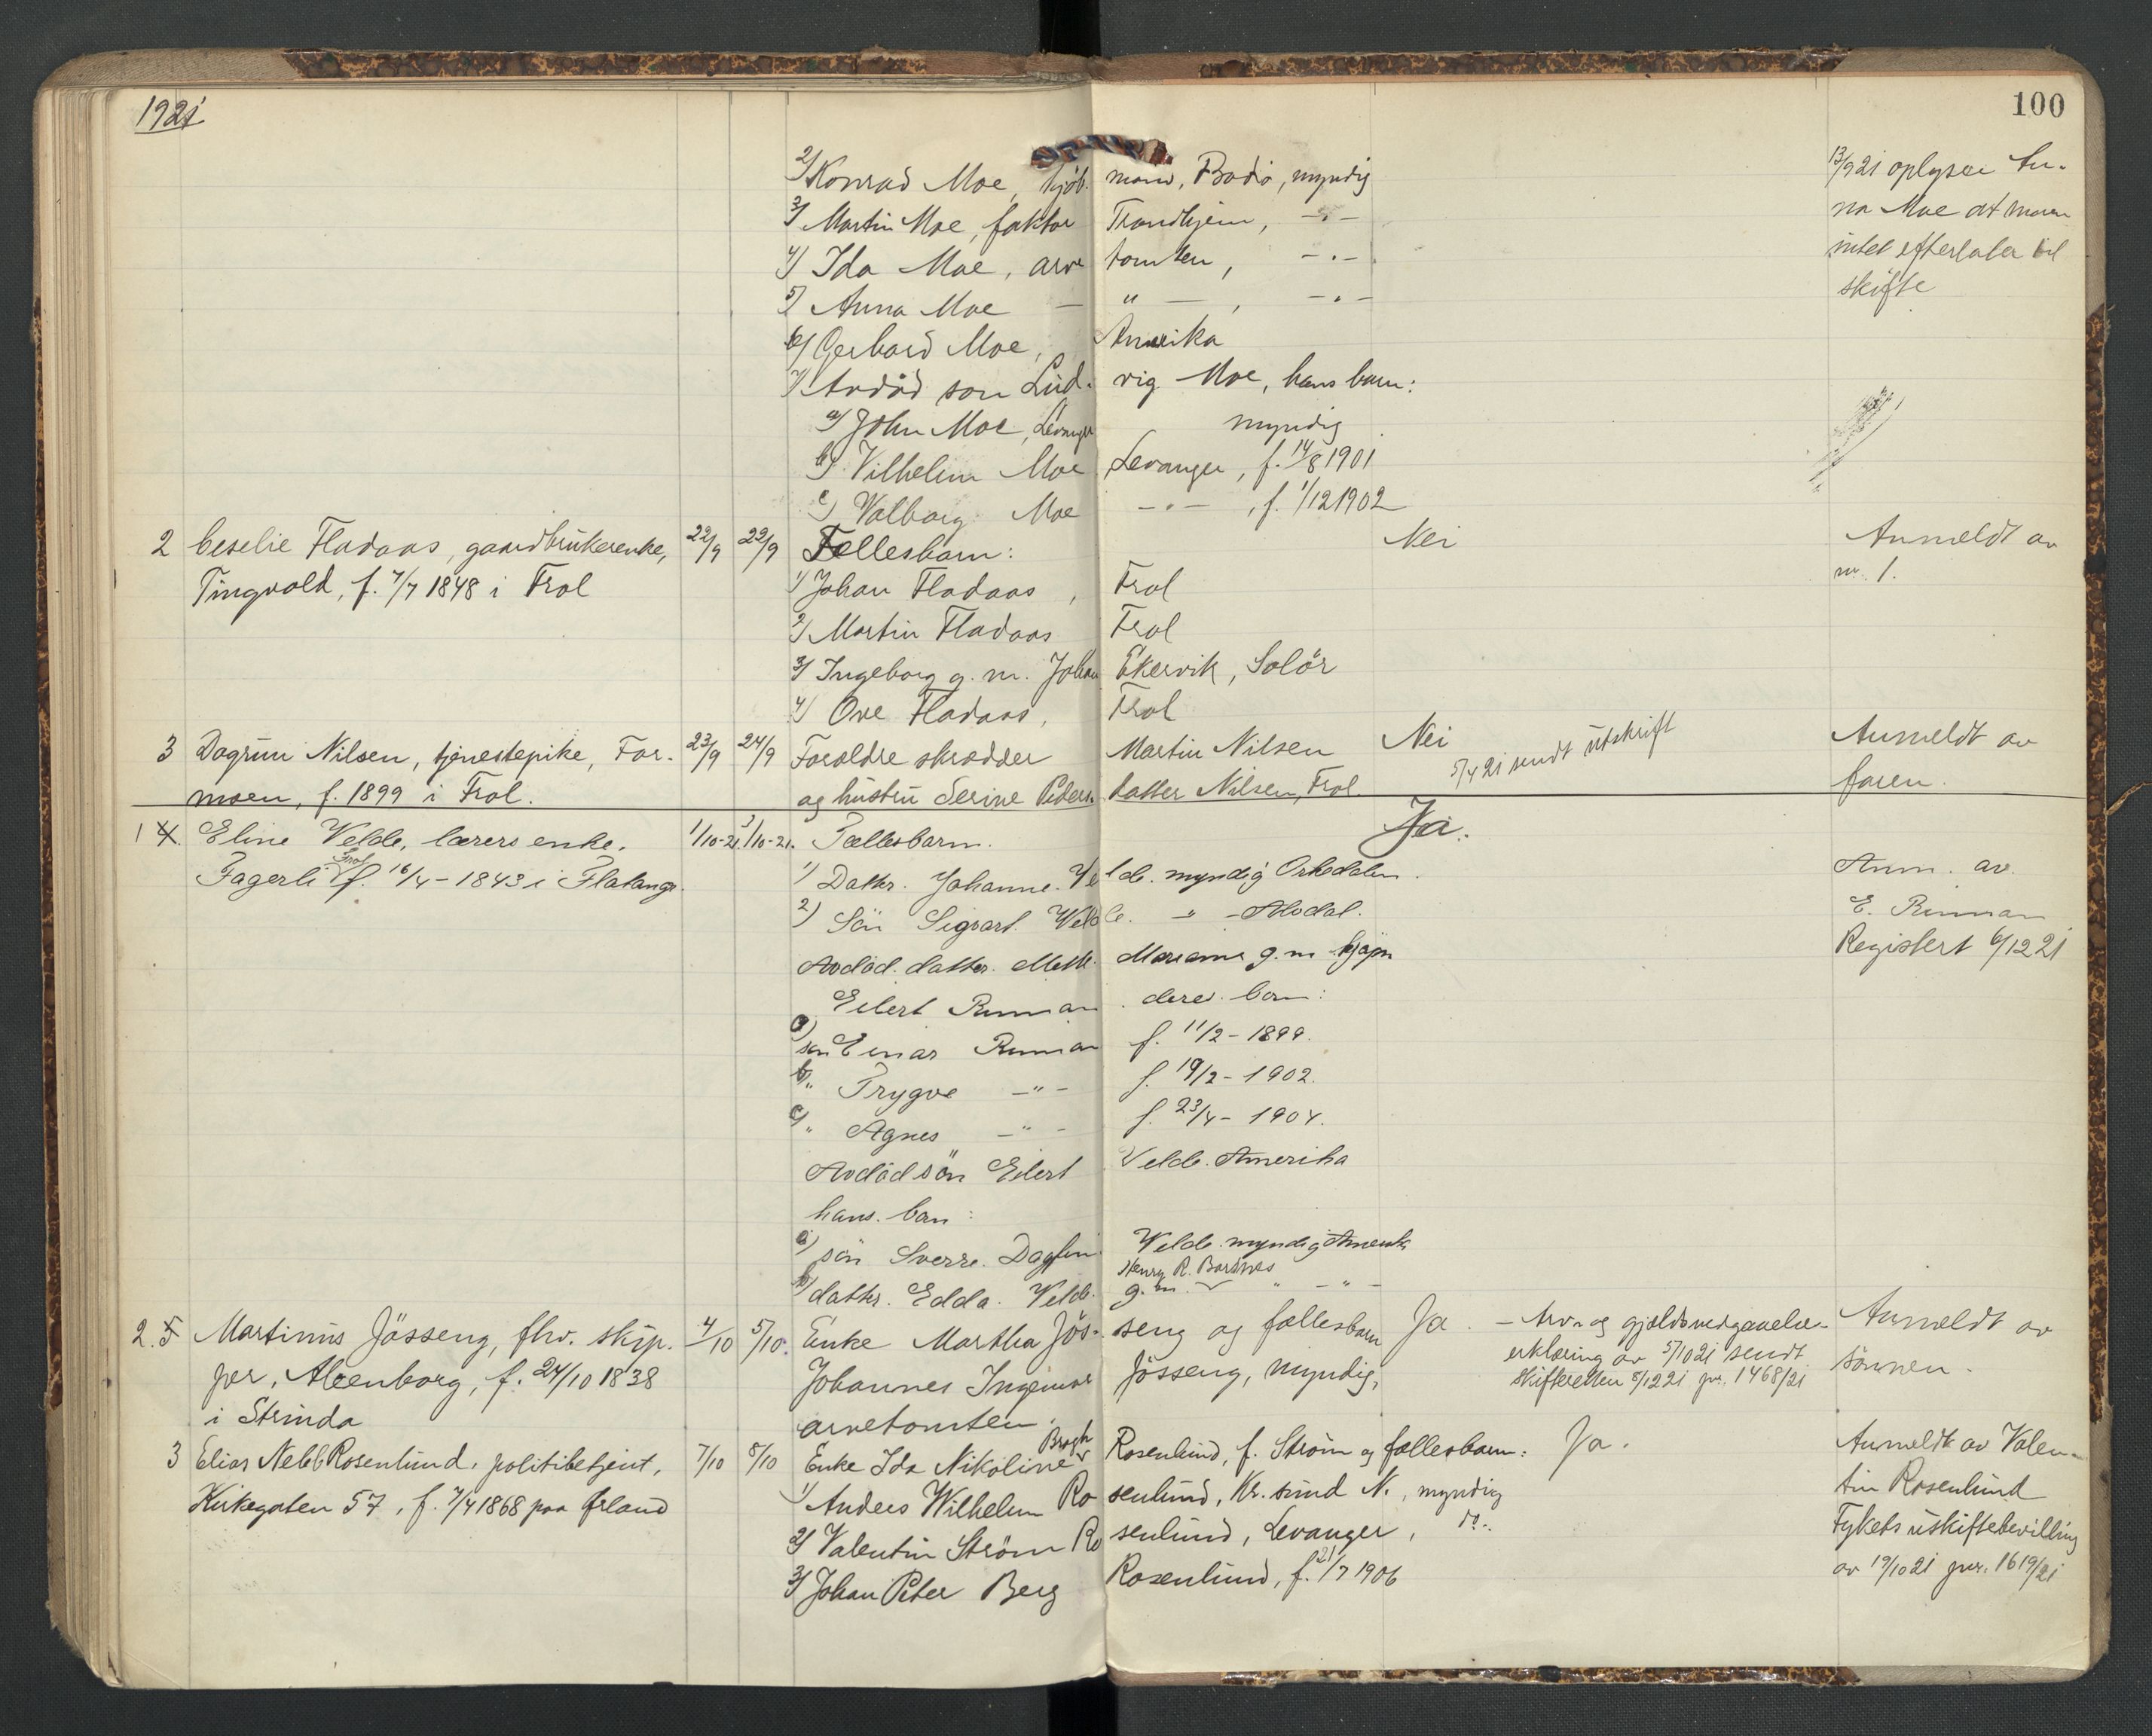 1921
100
2/ Konrad Moe, kjøb. mand, Bodø, myndig
3/ Martin Moe, faktor Trondhjem, -"-
4/ Ida Moe, arve tomten, -"-
5/ Anna Moe - " - , -"-
6/ Gerhard Moe, Amerika
7/ Avdöd søn Lud. vig Moe, hans barn:
a/ John Moe, Levanger myndig
b/ Vilhelm Moe Levanger, f. 14/8 1901
c/ Valborg Moe -"- , f. 1/12 1902
13/9 21 oplyser An-
na Moe at moren
intet efterlater til
skifte
2 Ceselie Fladaas, gaardbrukerenke, 22/9 22/9 Fællesbarn: Nei Anmeldt av
Tingvold, f. 7/7 1848 i Frol 1/ Johan Fladaas, Frol nr. 1.
2/ Martin Fladaas Frol
3/ Ingeborg g. m. Johan Ekervik, Solör
4/ Ove Fladaas, Frol
3 Dagrun Nilsen, tjenestepike, For- 23/9 24/9 Forældre skrædder Martin Nilsen Nei 5/4 21 sendt utskrift Anmeldt av
moen, f. 1899 i Frol. og hustru Serine Peders. datter Nilsen, Frol. faren.
1 4. Eline Velde, lærers enke. 1/10-21. 3/10-21. Fællesbarn. Ja.
Fagerli Frol f. 16/4-1843 i Flatanger. 1) Datter. Johanne. Ve lde. myndig Orkedalen. Anm. av.
2) Sön Sigvart. Veld e. -"- Aldal. E. Rinnan
Avdöd. datter. Meth. Mariane g.m. kjøpm Registert 6/12 21
Eilert Rinnan. deres barn:
a) sön Einar Rinnan f. 11/2-1899.
b) " Trygve -"- f. 19/2-1902.
c) " Agnes -"- f. 23/4-1904.
Avdöd sön Eilert Velde. Amerika
hans. barn:
a) sön Sverre. Dagfin. Velde. myndig Amerik
Henry R. Barsnes
b) datter. Edda. Velde. g.m. " -"-
2. 5 Martinus Jösseng, fhv. skip- 4/10 5/10. Enke Martha Jös- seng og fællesbarn Ja. - Arv- og gjeldsvedgaaelse- Anmeldt av
per, Alenborg, f. 24/10 1838 Johannes Ingemar Jösseng, myndig, erklæring av 5/10 21 sendt sönnen.
i Strinda arvetomten. skifteretten 8/12 21 jnr. 1468/21
3 Elias Nebb Rosenlund, politibetjent, 7/10 8/10 Enke Ida Nikoline Bergh Rosenlund, f. Strøm og fællesbarn: Ja. Anmeldt av Valen-
Kirkegaten 57, f. 7/4 1868 paa Ørland 1/ Anders Wilhelm Ro senlund, Kr. sund N., myndig tin Rosenlund
2/ Valentin Strøm Ro senlund, Levanger, do. Fylkets uskiftebevilling
3/ Johan Peter Berg Rosenlund, f. 21/7 1906 av 19/10 21 jnr. 1619/21